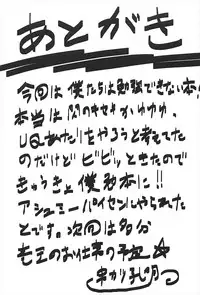 あとがき
今回は僕たちは勉強できない本!
本当は閃のキセキかゆゆゆ、
UQあたりをやろうと考えてた
のだけどビビッときたので
きゅうきょ僕勉本に!!
アシュミーパイセンにやられた
とです。次回は多分
毛王のお仕事の予定☆